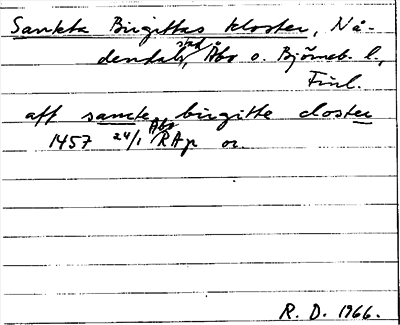 Sankta Birgittas kloster, Nå-
dendals stad, Åbo o. Björneb. l.,
Finl.
aff sancte birgitte closter
1457 24/1 Åbo RAp or.
R. D. 1966.